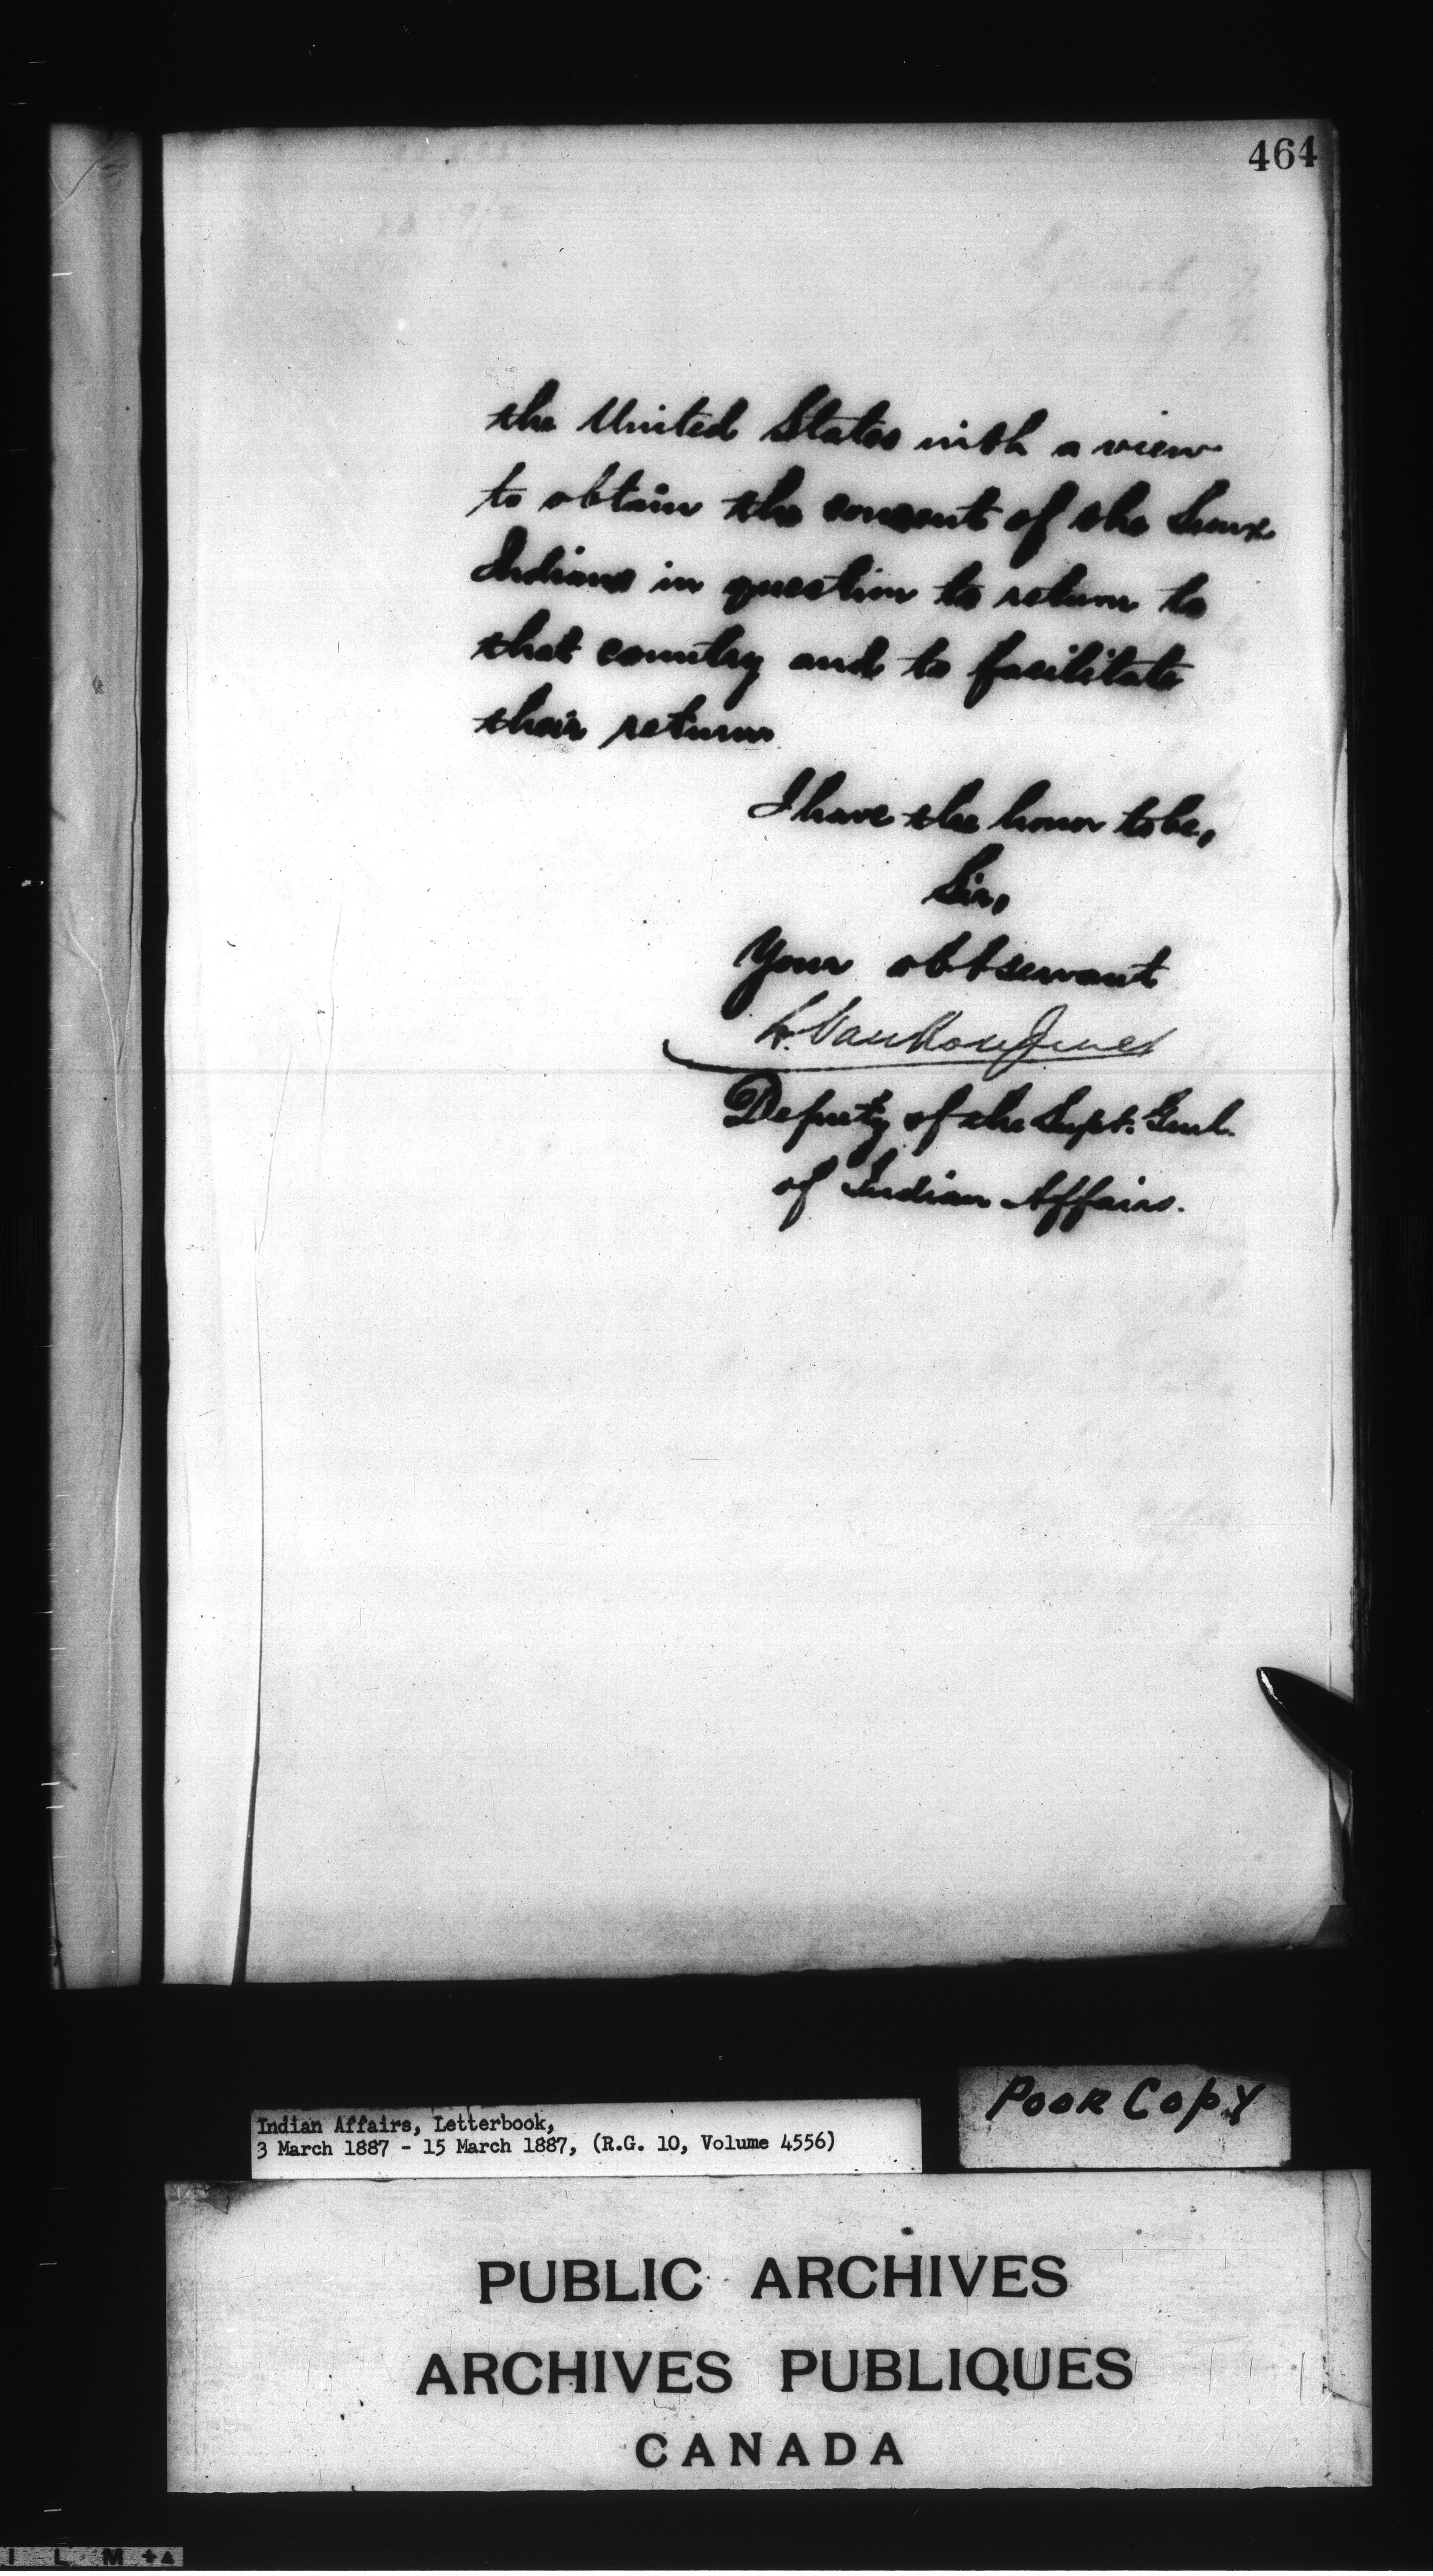 464
the United States with a view
to obtain the consent of the Sioux
Indians in question to return to
that country and to facilitate
their return
I have the honor to be,
Sir,
Your obt servant
L. Vankoughnet
Deputy of the Supt. Genl.
of Indian Affairs.
POOR COPY
Indian Affairs, Letterbook,
3 March 1887 - 15 March 1887, (R.G. 10, Volume 4556)
PUBLIC ARCHIVES
ARCHIVES PUBLIQUES
CANADA